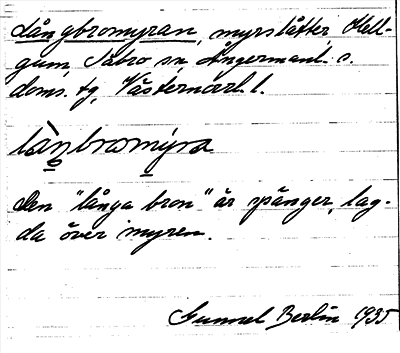 Långbromyran, myrslåtter, Häll-
gum, Säbro sn Ångermanl. s.
doms. tg, Västernorrl. l.
làŋbromýra
Den "långa bron" är spänger, lag-
da över myren.
Gunnel Berlin 1935